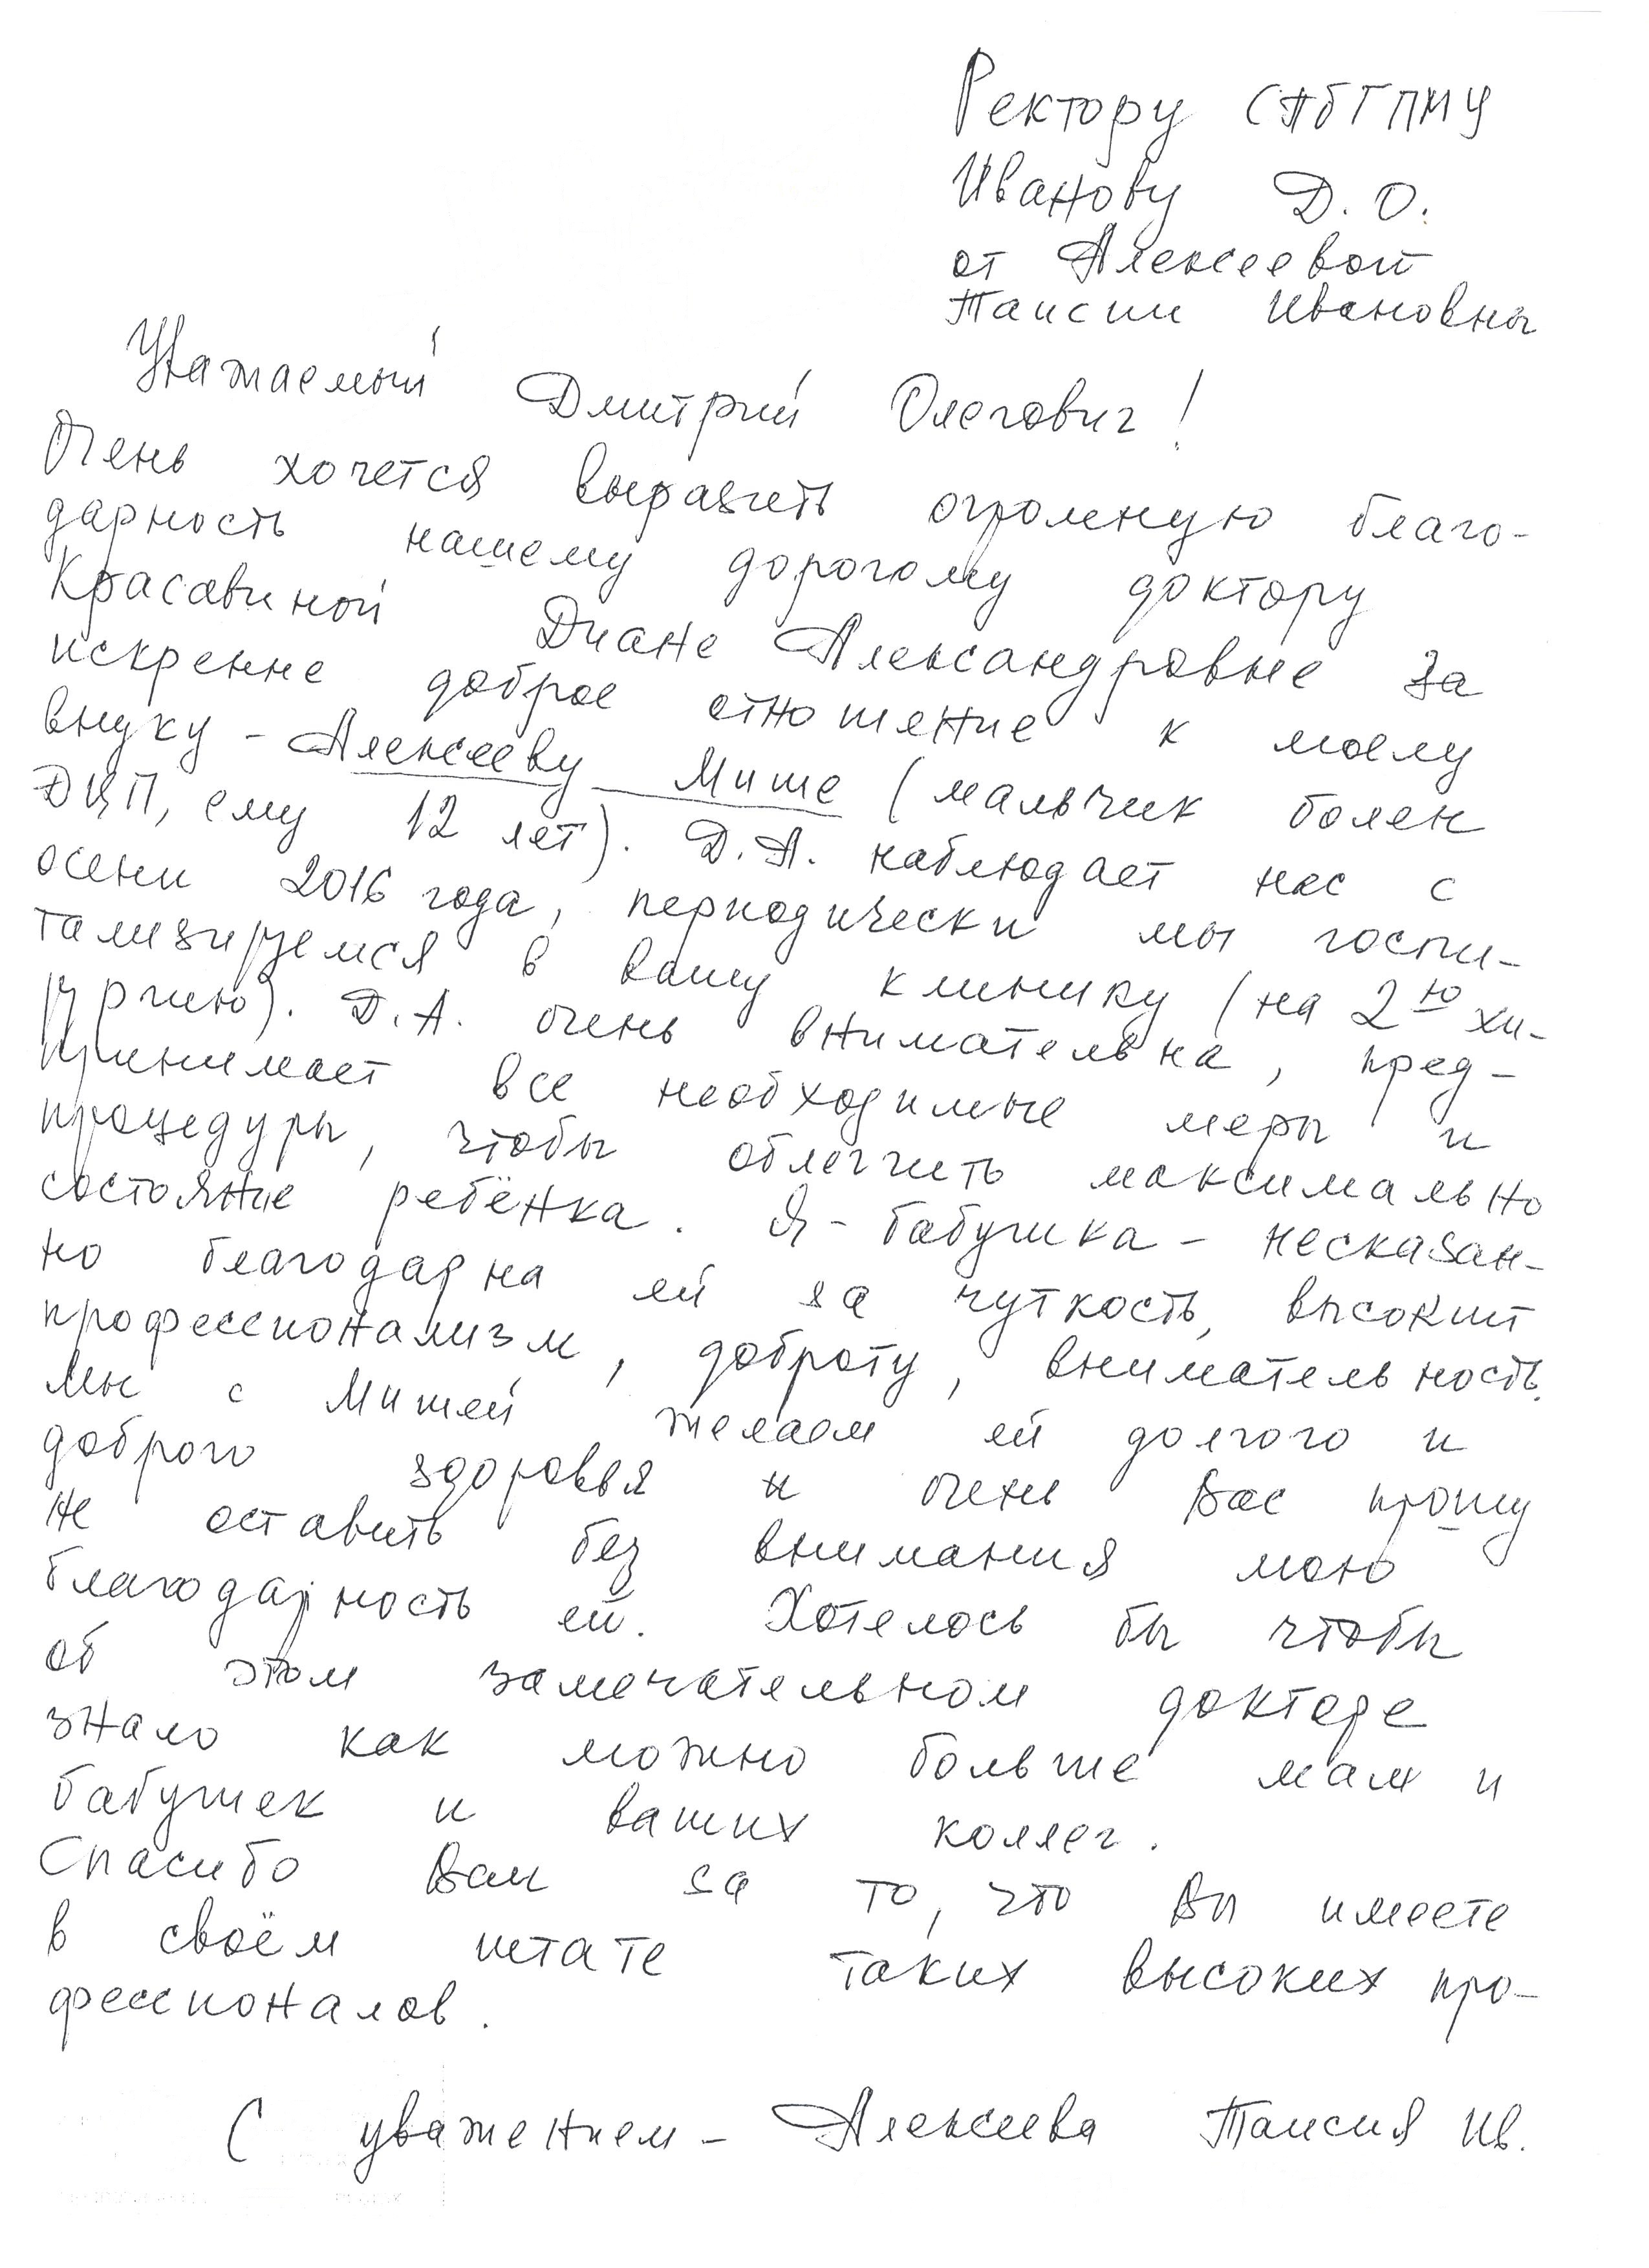 Ректору СПбГПМУ
Иванову Д.О.
от Алексеевой
Таисии Ивановны
Уважаемый Дмитрий Олегович!
Очень хочется выразить огромную благо-
дарность нашему дорогому доктору
Красавиной Диане Александровне за
искренне доброе отношение к моему
внуку - Алексееву Мише (мальчик болен
ДЦП, ему 12 лет). Д.А. наблюдает нас с
осени 2016 года, периодически мы госпи-
тализируемся в вашу клинику (на 2ю хи-
рургию). Д.А. очень внимательна, пред-
принимает все необходимые меры и
процедуры, чтобы облегчить максимально
состояние ребёнка. Я - бабушка - несказан-
но благодарна ей за чуткость, высокий
профессионализм, доброту, внимательность.
Мы с Мишей желаем ей долгого и
доброго здоровья и очень Вас прошу
не оставить без внимания мою
благодарность ей. Хотелось бы чтобы
об этом замечательном докторе
знало как можно больше мам и
бабушек и ваших коллег.
Спасибо Вам за то, что Вы имеете
в своём штате таких высоких про-
фессионалов.
С уважением - Алексеева Таисия Ив.